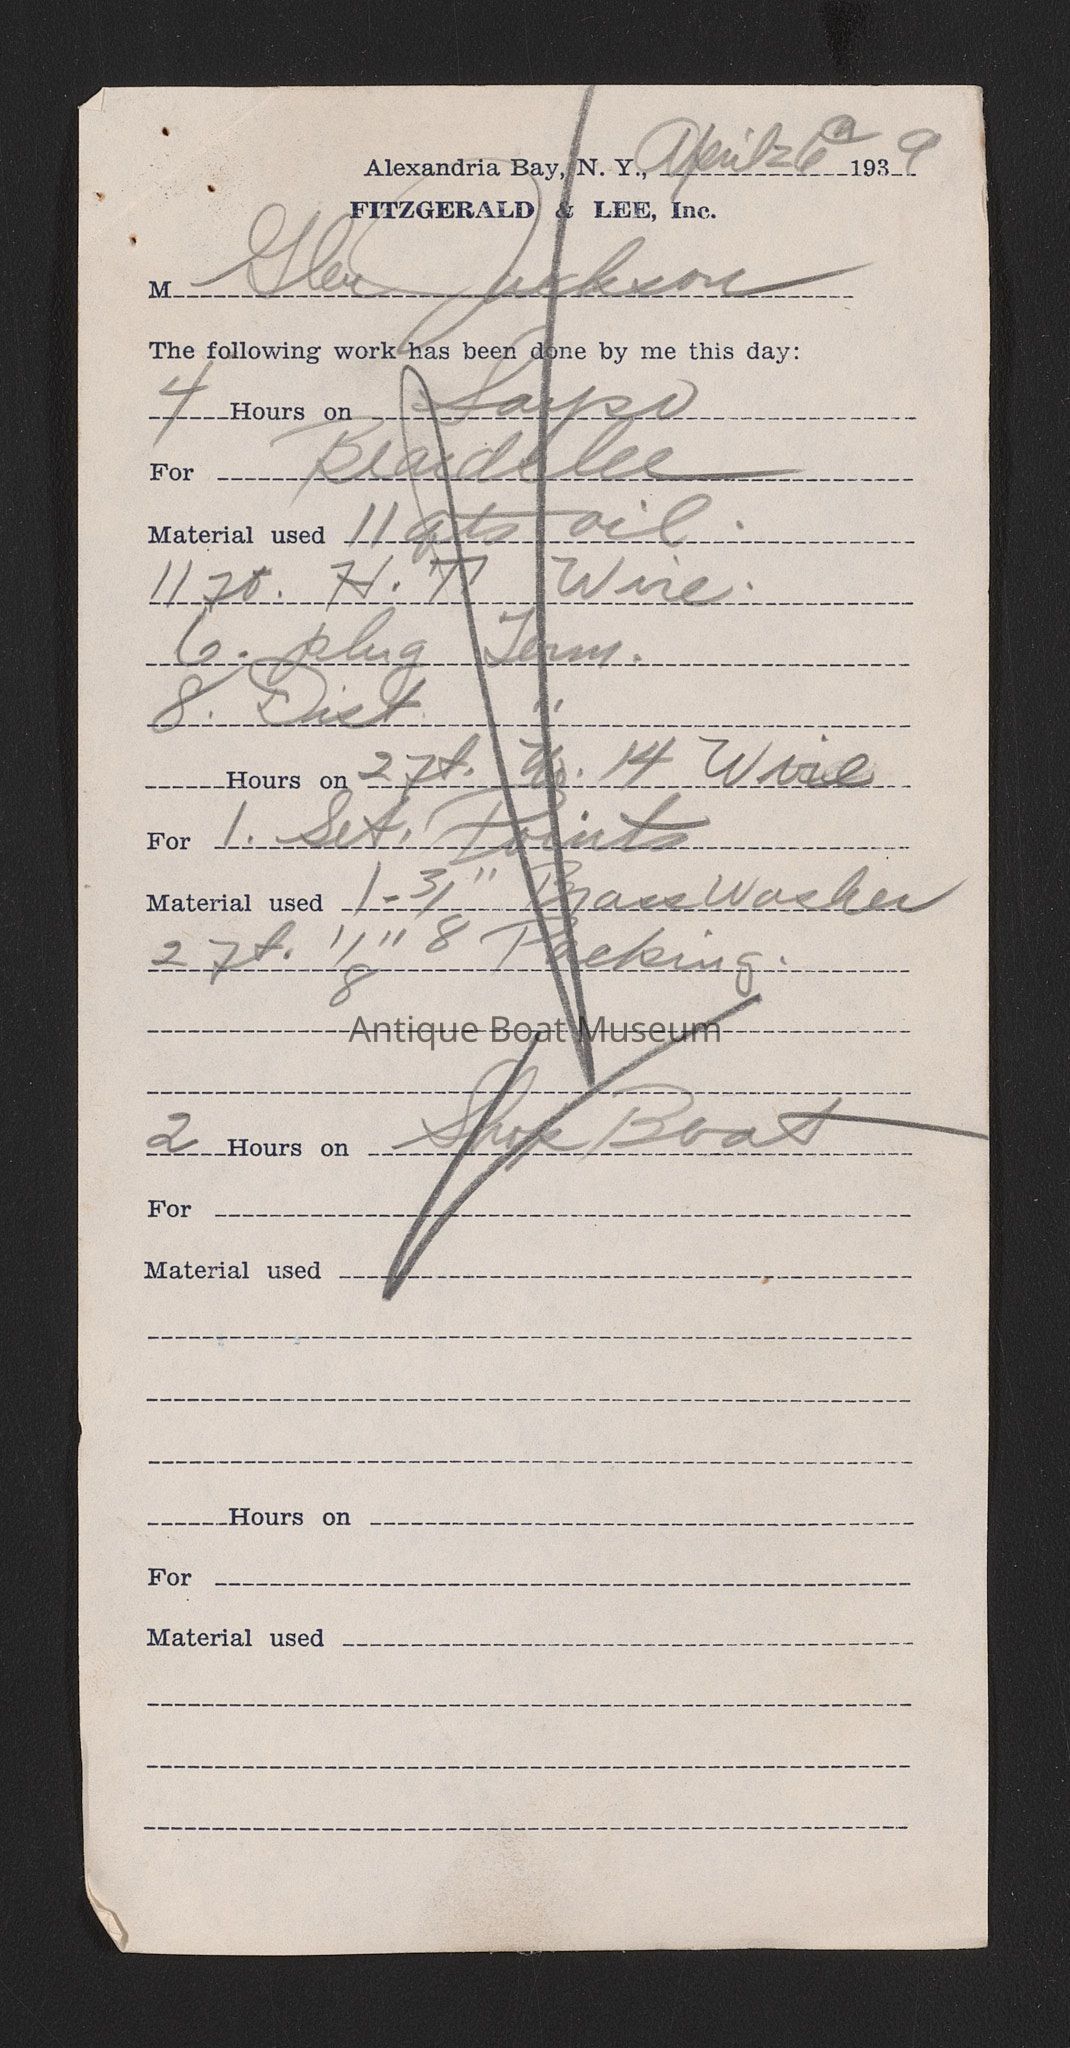 Alexandria Bay, N. Y., April 26 1939
FITZGERALD & LEE, Inc.
M Glen Jackson
The following work has been done by me this day:
4 Hours on
For
Material used 11 qts oil.
11 ft. H. T. Wire.
6. plug Term.
8. Dist. "
Hours on 2 ft. No. 14 Wire
For 1. Set. Points
Material used 1 - 3/8" Brass Washer
2 ft. 1/8" Packing.
Antique Boat Museum
2 Hours on Shop Boat
For
Material used
Hours on
For
Material used